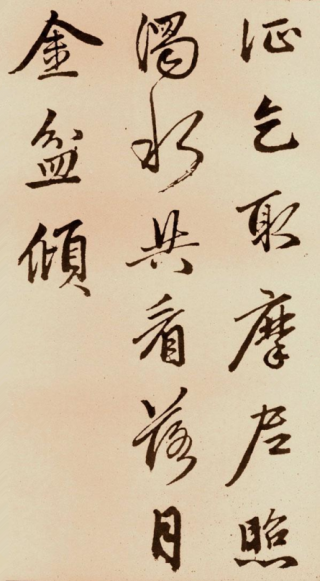 乞取摩尼照
濁水共看落月
金盆傾